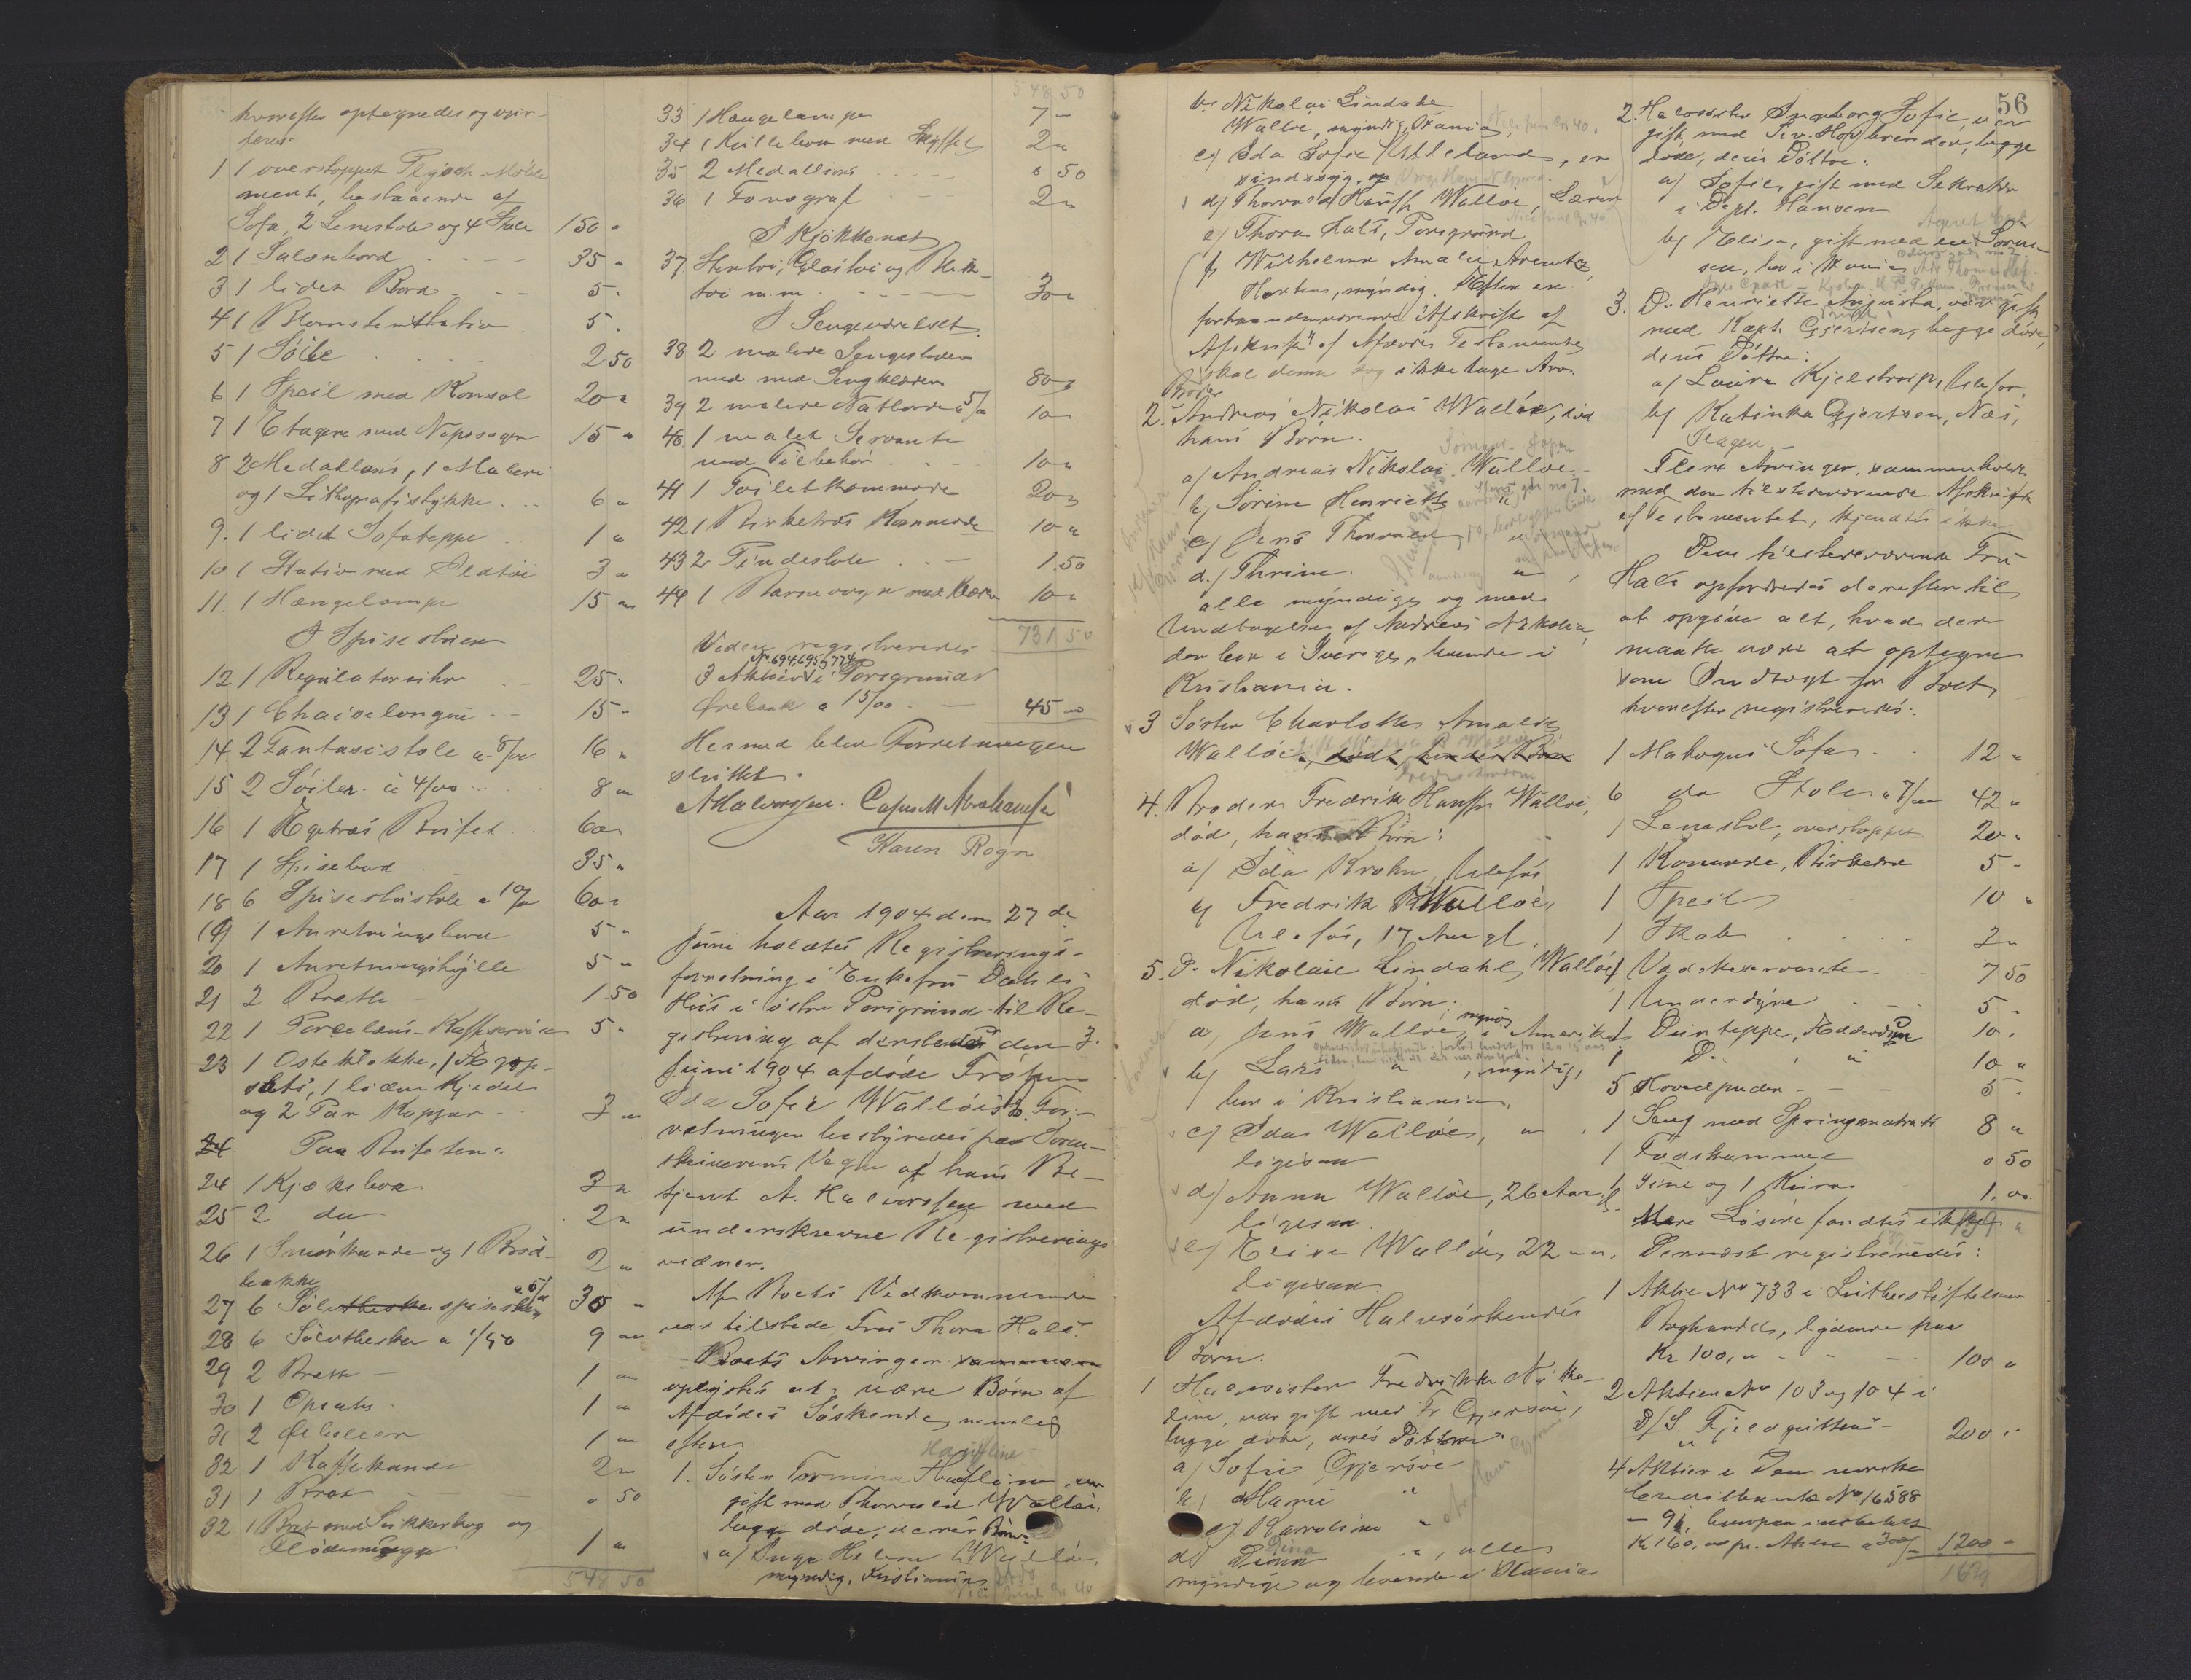 hvorefter optegnedes og vur-
deres:
1. 1 overstoppet Plysch Møble
ment, bestaaende af
Sofa, 2 Lenestole og 4 Stole 150 "
2 1 Salonbord 35 "
3 1 lidet Bord 5 "
4 1 Blomsterstativ 5 "
5 1 Söile 2 50
6 1 Speil med Konsol 20 "
7 1 Etagere med Nipssager 15 "
8 2 Medallons, 1 Maleri
og 1 Lithografistykke 6 "
9. 1 lidet Sofateppe 1 "
10 1 Stativ med Ildtöi 3 "
11. 1 Hængelampe 15 "
I Spisestuen
12 1 Regulatoruhr 25 "
13 1 Chaiselongue 15 "
14 2 Fantasistole a 8/00 16 "
15 2 Söiler a 4/00 8 "
16 1 Egetræs Buffet 60 "
17 1 Spisebord 35 "
18 6 Spisestustole a 10/00 60 "
19 1 Anretningsbord 5 "
20 1 Anretningshylle 5 "
21 2 Bratte 1 50
22 1 Porcelæns-Kaffeservise 5 "
23 1 Osteklokke, 1 Æg op-
sats, 1 liden Kjedel
og 2 Par Kopper 3 "
24. Paa Buffeten:
24 1 Kjæksbox 3 "
25 2 do 2 "
26 1 Smörkande og 1 Bröd-
bakke 2 "
27 6 Sölv theskeer spiseskeer a 5/00 30 "
28 6 Sölvtheskeer a 1/50 9 "
29 2 Bratte 1 "
30 1 Opsats 1 "
31 2 Ölboller 1 "
32 1 Kaffekande 2 "
31 1 Bret 0 50
32 1 Bret med Sukkerkop og
Flödemugge 1 "
548 50
548 50
33 1 Hængelampe 7 "
34 1 Hyllebord med 2 "
35 2 Medallions 0 50
36 1 Fonograf 2 "
I Kjökkenet
37 Stentöi, Glastöi og Blik-
töi m.m. 30 "
I Sengeværelset
38 2 malede Sengesteder
med Sengklæder 80 "
39 2 malede Natborde a 5/00 10 "
40 1 malet Servante
med Tilbehör 10 "
41 1 Toiletkommode 20 "
42 1 Birketræs Kommode 10 "
43 2 Pindestole 1.50
44 1 Barnevogn med Klæder 10 "
731 50
Videre registreredes
No 694, 695, 774
3 Aktier i Porsgrunds
Örebank a 15/00 45 "
Hermed blev Forretningen
sluttet.
A Halvorssen. M Abrahamsen
Karen Rogn
Aar 1904 den 27de
Juni holdtes Registrerings-
forretning i Enkefru Dahls
Hus i östre Porsgrund til Re-
gistrering af dersteds den 3.
Juni 1904 afdöde Fröken
Ida Sofie Wallöes Bo. For-
retningen bestyredes paa Soren-
skriverens Vegne af hans Be-
tjent A. Halvorssen med
underskrevne Registrerings
vidner.
Af Boets Vedkommende
var tilstede Fru Thora Hals.
Boets Arvinger
oplystes at være Börn af
Afdödes Söskende, nemlig
efter
1. Söster Tormine Haufline, var
gift med Thorvald Wallöe,
begge döde, deres Börn:
a) Inga Helene Wallöe,
myndig, Kristiania
b. Nikolai Lindahl
Wallöe, myndig, Krania,
c) Ida Sofie Ulleland, er
sindssyg, og
d) Thorvald Hauff Wallöe, Lærer
e) Thora Hals, Porsgrund
f) Wilhelma Amalie Arentz,
Hortens, myndig. Efter en
forhaandenværende "Afskrift af
Afskrift" af Afdødes Testamente
skal denne dog ikke tage Arv.
Broder
2. Andreas Nikolai Wallöe, död
hans Börn.
a) Andreas Nikolai Wallöe
b) Sörine Henriette "
c) Jens Thorvald "
d.) Thrine. "
alle myndige og med
Undtagelse af Andreas Nikolai,
der bor i Sverige, boende i
Kristiania.
3 Söster Charlotte Amalie
Wallöe, död, uden Börn
4. Broder Fredrik Hauff Wallöe,
död, hans Börn:
a) Ida Krohn, Ulefos
b) Fredrik Wallöe,
Ulefos, 17 Aar gl.
5. Do Nikolai Lindahl Wallöe
död, hans Börn:
a) Jens Wallöe, myndig i Amerika
b) Lars " , myndig,
bor i Kristiania,
c) Ida Wallöe, " "
ligesaa
d) Anna Wallöe, 26 Aar gl.
ligesaa
e) Elise Wallöe, 22 " "
ligesaa
Afdödes Halvsöskendes
Börn.
1 Halvsöster Fredrikke Niko-
line, var gift med Fr. Gjersöe,
begge döde, deres Döttre:
a) Sofie Gjersöe
b) Marie "
c) Karoline "
d) Dina " , alle
myndige og boende i Krania
56
2. Halvsöster Ingeborg Sofie, var
gift med Siv. Hovbrender, begge
döde, deres Döttre:
a) Sofie, gift med Sekretær
i Dept. Hansen
b) Elise, gift med en Soren-
sen, bor i Krania
3. Do Henriette Augusta, var gift
med Kapt. Gjertsen, begge döde,
deres Döttre:
a) Laura Kjelstrup, Ulefos,
b) Katinka Gjertsen, Næs,
Skagen
Flere Arvinger, sammenholdt
med den tilstedeværende Afskrift
af Testamentet, kjendtes ikke
Den tilstedeværende Fru
Hals opfordredes derefter til
at opgive alt, hvad der
maatte være at optegne
som Indtægt for Boet,
hvorefter registreredes:
1 Mahogni Sofa 12 "
6 do Stole a 7/00 42 "
1 Lenestol, overstoppet 20 "
1 Komode, Birketræ 5 "
1 Speil 10 "
1 Skab 3 "
1 Vadskeservante 7 50
1 Underdyne 5 "
1 Duntæppe, Edderdun 10 "
1 Do " 10 "
5 Hovedpuder 5 "
1 Seng med Springmatrats 8 "
1 Fodskammel 0 50
1 Tine og 1 Kurv 1.00
139 "
Mere Lösöre fandtes ikke
Dernæst registreredes:
1 Aktie No 733 i Lutherstiftelsens
Boghandel, lydende paa
Kr 100, " 100 "
2 Aktier No 103 og 104 i
D/S. "Fjeldgutten" 200 "
4 Aktier i Den norske
Creditbank No 16588
— 91, hvorpaa indbetalt
Kr 160, " pr. Aktie a 300/00 1200 "
1639